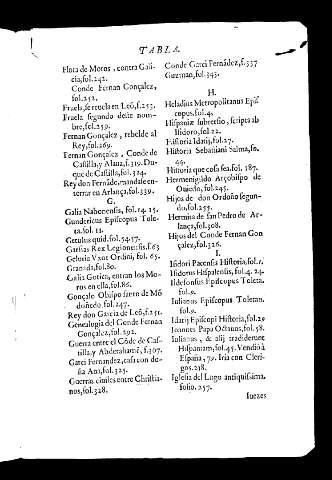 TABLA.
Flora de Moros, contra Gali-
cia, fol. 242.
Conde Fernan Gonçalez,
fol. 252.
Fruela, se reuela en Leō, f. 253.
Fruela segundo deste nom-
bre, fol. 259.
Fernan Gonçalez, rebelde al
Rey, fol. 269.
Fernan Gonçalez, Conde de
Castilla, y Alaua, f. 319. Du-
que de Castilla, fol. 324.
Rey don Fernādo, mandase en-
terrar en Arlança, fol. 339.
G.
Galia Nabonensis, fol. 14. 15.
Gundericus Episcopus Tole-
ta. fol. 11.
Getulus quid. fol. 54. 17.
Garsias Rex Legionensis, f. 63
Geloria Vxor Ordini, fol. 65.
Granada, fol. 80.
Galia Gotica, entran los Mo-
ros en ella, fol. 86.
Gonçalo Obispo santo de Mō
doñedo. fol. 247.
Rey don Garcia de Leō, f. 251.
Genealogia del Conde Fernan
Gonçalez, fol. 292.
Guerra entre el Cōde de Cas-
tilla, y Abderahamē, f. 307.
Garci Fernandez, casa con do-
ña Aua, fol. 325.
Guerras ciuiles entre Christia-
nos, fol. 328.
Conde Garci Fernādez, f. 337
Guzman, fol. 343.
H.
Heladius Metropolitanus Epis
copus. fol. 4.
Hispaniæ subuersio, scripta ab
Isidoro, fol. 22.
Historia Idatij, fol. 27.
Historia Sebastiani Salma, fo.
44.
Historia que cosa sea. fol. 187.
Hermenegildo Arçobispo de
Ouiedo, fol. 245.
Hijos de don Ordoño segun-
do, fol. 255.
Hermita de san Pedro de Ar-
lança, fol. 308.
Hijos del Conde Fernan Gon
çalez, fol. 326.
I.
Isidori Pacensis Historia, fol. 1.
Isidorus Hispalensis, fol. 4. 24.
Ildefonsus Episcopus Toleta.
fol. 9.
Iulianus Episcopus Toletan.
fol. 9.
Idatij Episcopi Historia, fol. 29
Ioannes Papa Octauus, fol. 58.
Iulianus, & alij tradiderunt
Hispaniam, fol. 45. Vendiò à
España, 79. Iria con Cleri-
gos. 238.
Iglesia del Lugo antiquissima.
folio. 257.
Iuezes